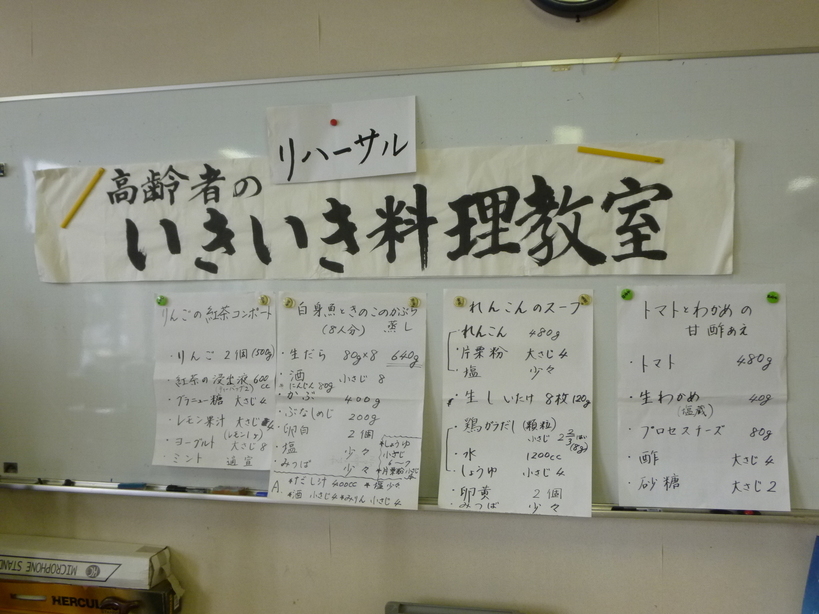 リハーサル
高齢者の
いきいき料理教室
りんごの紅茶コンポート
・りんご 2個 (500g)
・紅茶の浸出液 600cc
・グラニュー糖 大さじ4
・レモン果汁 大さじ4
(レモン1ヶ)
・ヨーグルト 大さじ8
・ミント 適宜
白身魚ときのこのかぶら
(8人分) 蒸し
・生だら 80g×8 640g
・酒 小さじ 8
・にんじん 80g
・かぶ 400g
・ぶなしめじ 200g
・卵白 2個
・塩 少々
・みつば 少々
*しょうゆ
小さじ
*片栗粉
A. *だし汁 400cc *塩 少々
*酒 小さじ4 *みりん 小さじ4
れんこんのスープ
・れんこん 480g
・片栗粉 大さじ4
・塩 少々
・生しいたけ 8枚 120g
・鶏ガラだし(顆粒)
小さじ 2 2/3 (8g)
・水 1200cc
・しょうゆ 小さじ4
・卵黄 2個
・みつば 少々
トマトとわかめの
甘酢あえ
・トマト 480g
・生わかめ 40g
(塩蔵)
・プロセスチーズ 80g
・酢 大さじ4
・砂糖 大さじ2
MICROPHONE STAND
HERCUL